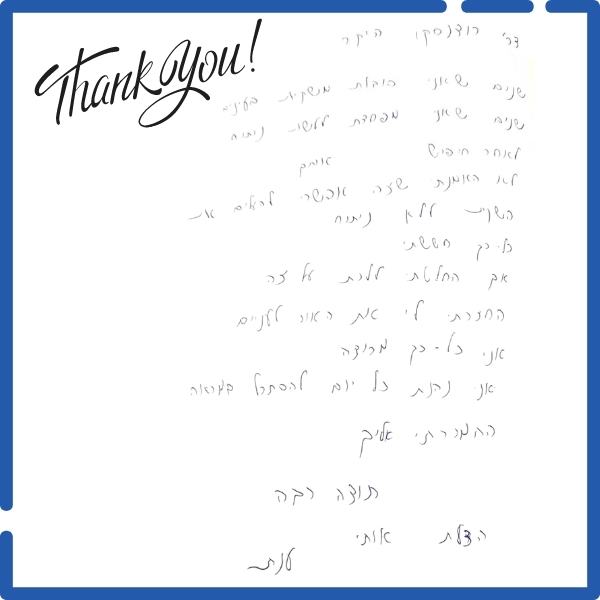 Thank you!
דר' רודנסקי היקר
שנים שאני סובלת משקיות בעינים
שנים שאני מפחדת לעשות ניתוח
לאחר חיפוש אותך
לא האמנתי שזה אפשרי להעלים את
השקיות ללא ניתוח
כל כך חששתי
אך החלטתי ללכת על זה
החזרת לי את האור לעניים
אני כל-כך מרוצה
אני נהנת כל יום להסתכל במראה
התמכרתי אליך
תודה רבה
הצלת אותי
ענת